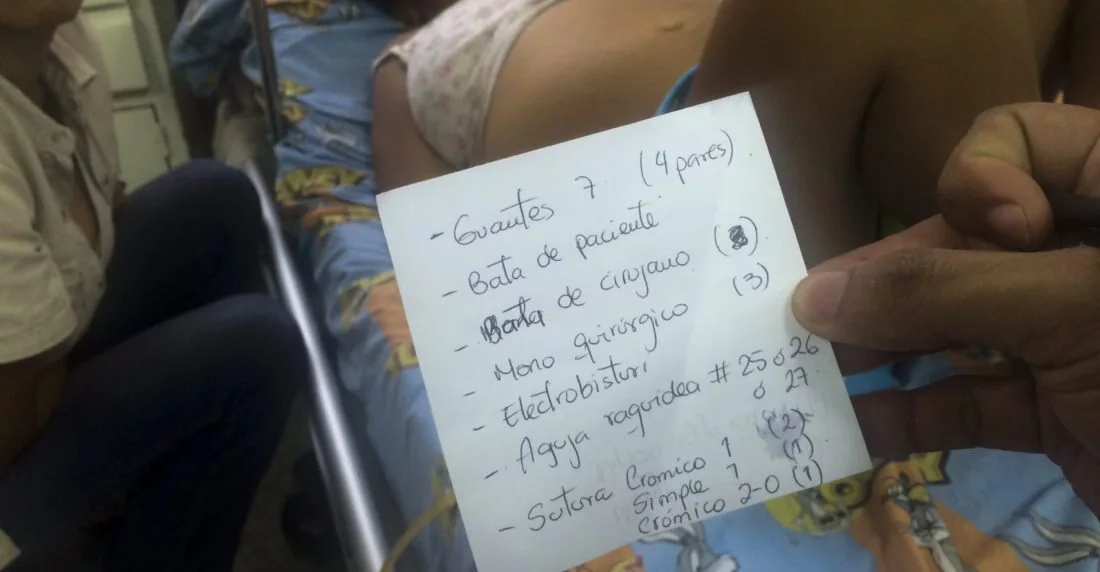 - Guantes 7 (4 pares).
- Bata de paciente
- Bata de cirujano
- Mono quirúrgico (3)
- Electrobisturi
- Aguja raquidea # 25 ó 26
ó 27
- Sutura Cromico 1 (2)
Simple 1 (1)
Crómico 2-0 (1)